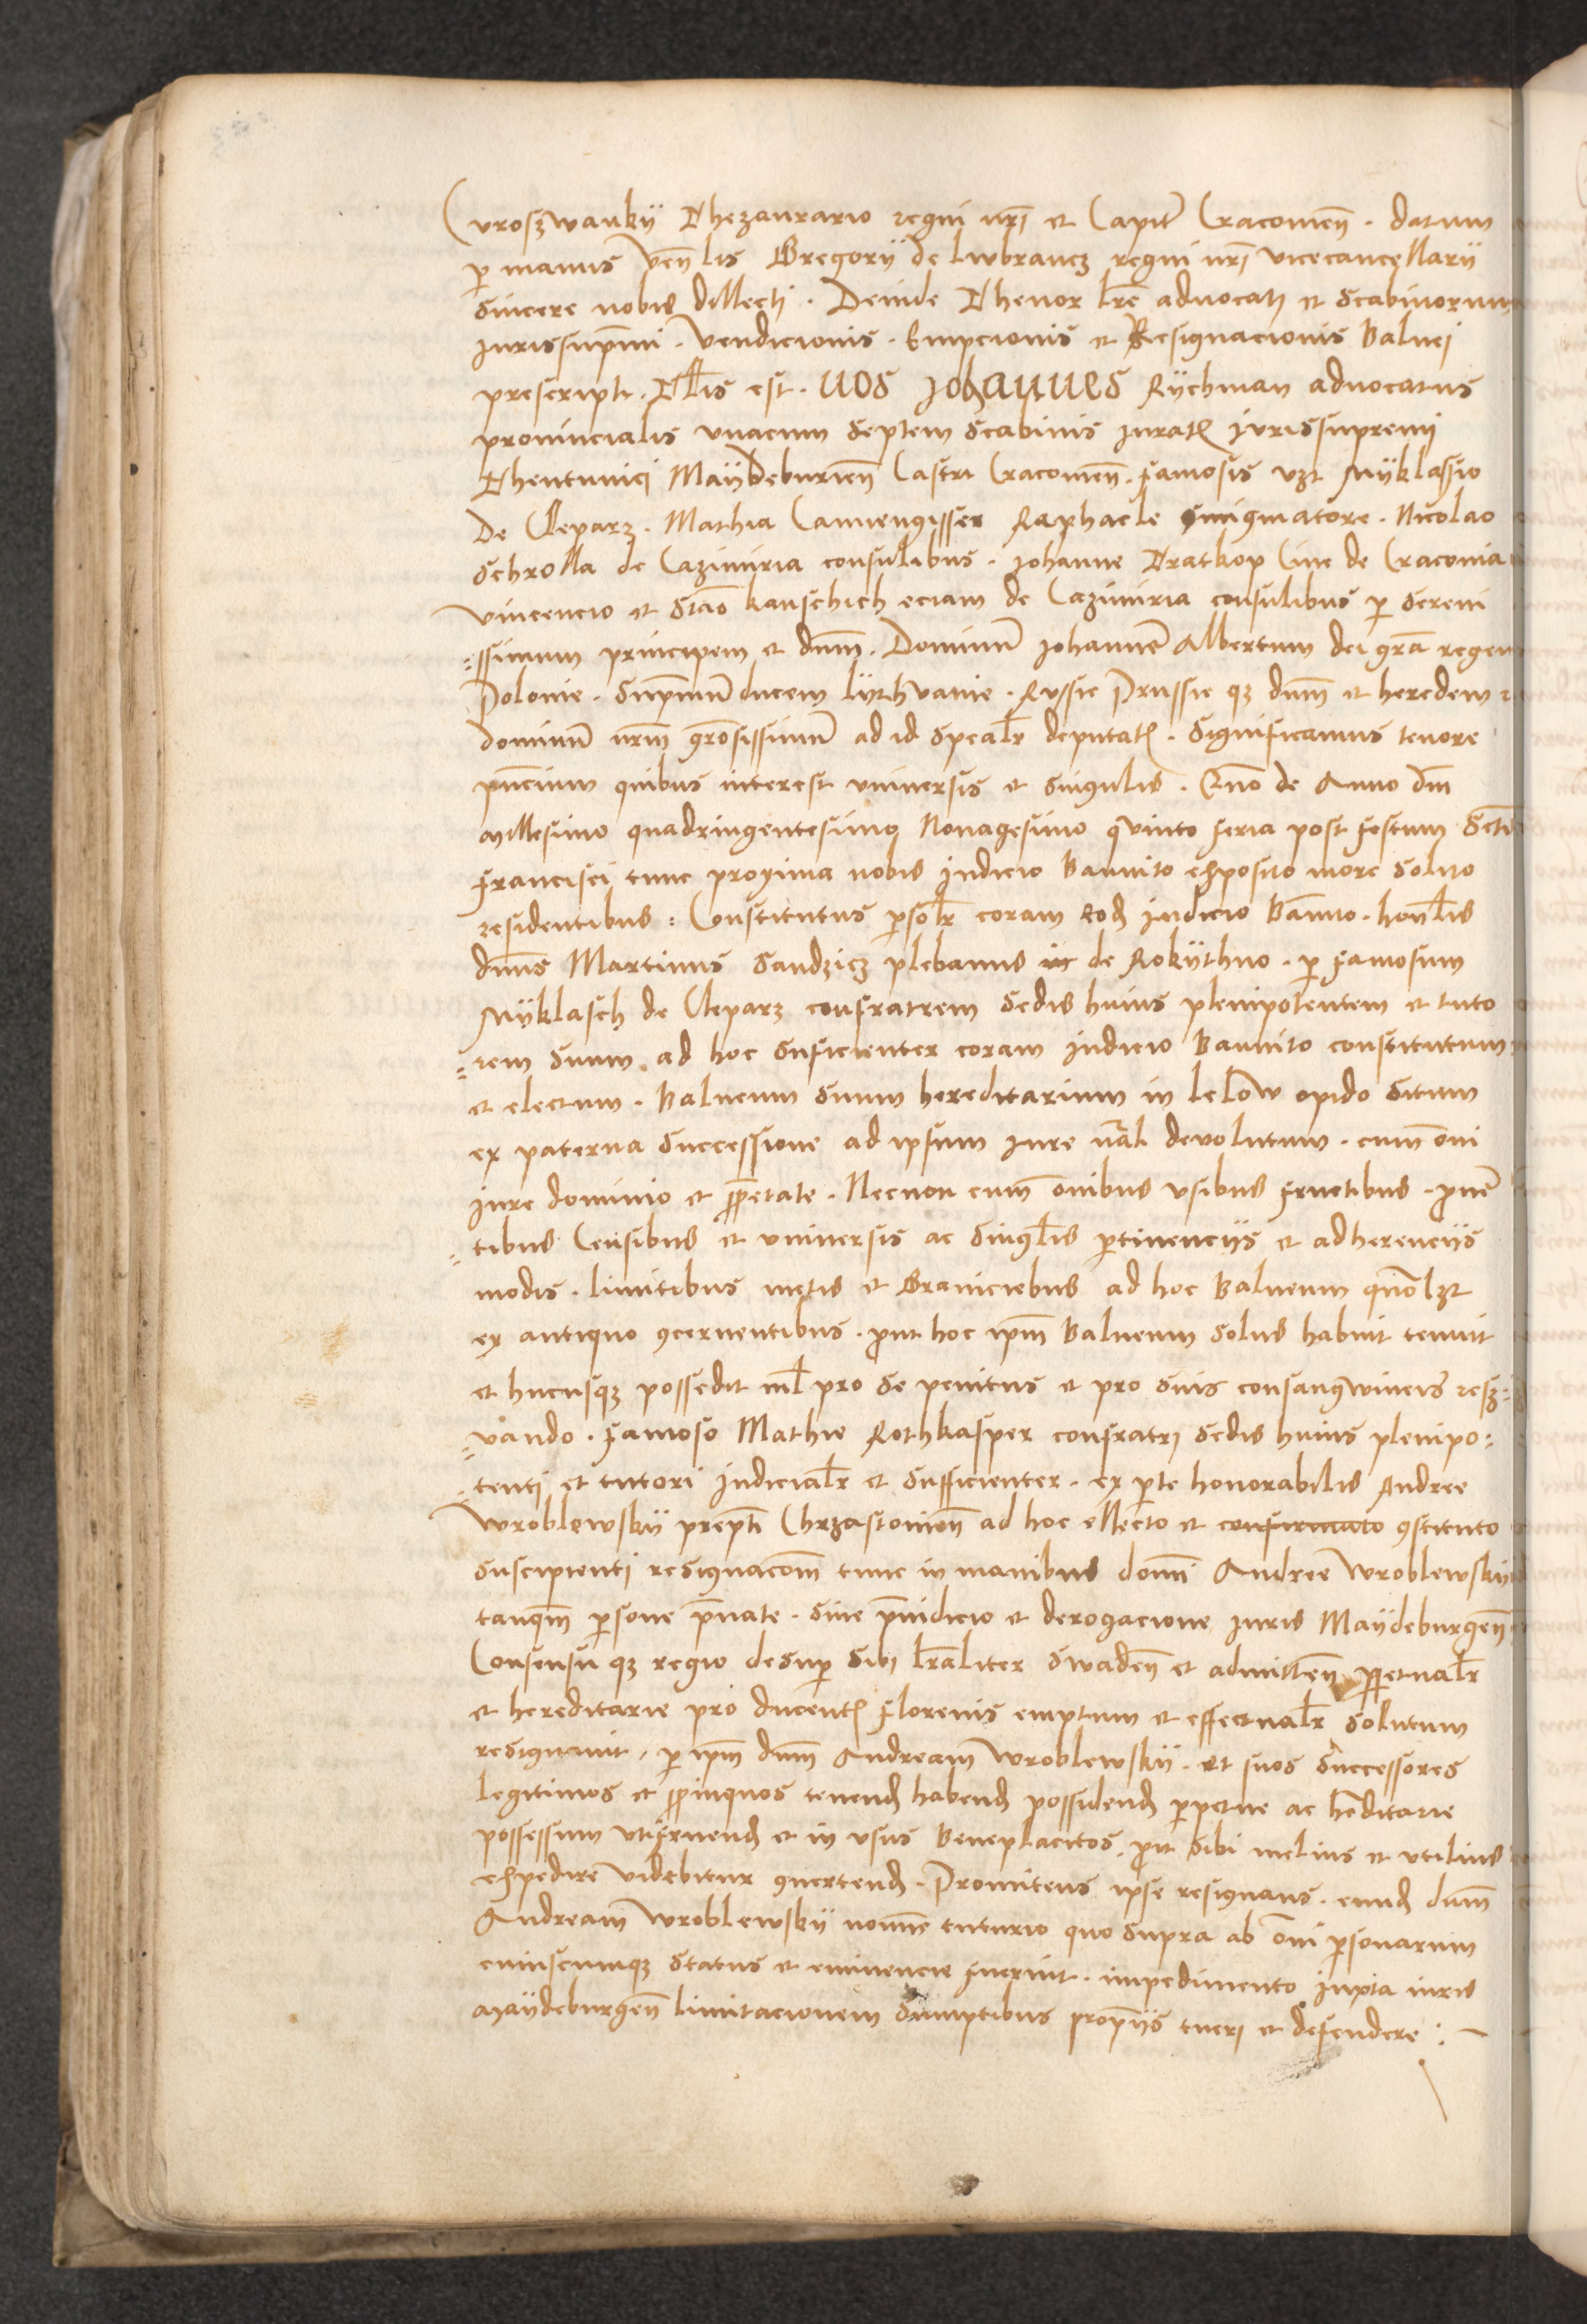 Curoszwanky Thezaurario regni nrı̄ et Capit Cracouien̄ . datum
p manus Ven̄lis Gregorÿ de lwbrancz regni nrı̄ vicecancellarÿ
sincere nobis dillecti . Deinde Thenor lrē aduocati et scabinorum
Iurissupm̄i . Vendicionis . Empcionis et Resignacionis Balnei
prescripti . Tlis est . Nos Johannes Rÿchman aduocatus
prouincialis vnacum septem scabinis iurat Iurissupremi
Theutunici Maÿdeburien̄ Castri Cracouien̄ . famosis vzt Mÿklassio
De Cleparz . Mathia Canne​ngisser Raphaele . Nicolao
Schrolla de Cazimiria consulibus . Johanne Tratkop Ciue de Cracouia
Vincencio et Stāo kauschich eciam de Cazimiria consulibus p sereni
=ssimum principem et dn̄m . Dominū Johannē Albertum dei grā regem
Polonie . Supm̄um ducem lÿthuanie . Russie Prussie qz dn̄m et heredem
dominū nrm̄ grōsissimū ad id spealr deputat . Significamus tenore
pn̄cium quibus interest vniuersis et singulis . Quō de Anno dn̄i
Millesimo quadringentesimo Nonagesimo quinto feria post festum Scti
francisci tunc proxima nobis Iudicio Bannito exposito more solito
residentibus : Constitutus psolr coram eod Iudicio Bānnio . honlis
dn̄us Martinus Sandzicz plebanus in de Rokÿthno . p famosum
Mÿklasch de Cleparz confratrem sedis huius plenipotentem et tuto
=rem suum . ad hoc suficienter coram Iudicio Bannito constitutum
et electum . Balneum suum hereditarium in lelow opido situm
ex paterna successione ad ipsum iure nral deuolutum . cum oni
iure dominio et ppetate . Necnon cum onibus vsibus fructibus . prouē
=tibus Censibus et vniuersis ac singlis ptinencÿs et adherencÿs
modis . limitibus metis et Graniciebus ad hoc Balneum qm̄olzt
ex antiquo 9cernentibus . put hoc ipm̄ Balneum solus habuit tenuit
et hucusqz possedit nil pro se penitus et pro suis consangwineis resz=
=uando . famoso Mathie Rothkasper confratri sedis huius plenipo=
=tenti et tutori Iudicialr et sufficienter . ex pte honorabilis Andree
Wroblewskÿ prepti Chrzastouien̄ ad hoc ellecto et confirmato 9stituto
suscipienti resignacom̄ tunc in manibus domı̄ Andree Wroblewskÿ
tanqm̄ psone p̄uate . sine p̄iudicio et derogacione iuris Maÿdeburgen̄
Consensu qz regio desup sibi lrāliter swaden̄ et admitten̄ ppetualr
et hereditarie pro ducent florenis emptum et effectualr solutum
resignauit , p ipm̄ dn̄m Andream Wroblewskÿ . et suos Successores
legitimos et ppinquos tenend habend possidend perpetue ac hēditarie
possessum vtifruend et in vsus beneplacitos . put sibi melius et vtilius
expedire videbitur 9uertend . Promitens ipse resignans . eund dn̄m
Andream Wroblewskÿ nomīe tuturio quo supra ab oni psonarum
cuiuscumqz status et eminencie fuerint . impedimento Iuxta iuris
Maÿdeburgen̄ limitacionem sumptibus propÿs tueri et defendere :~